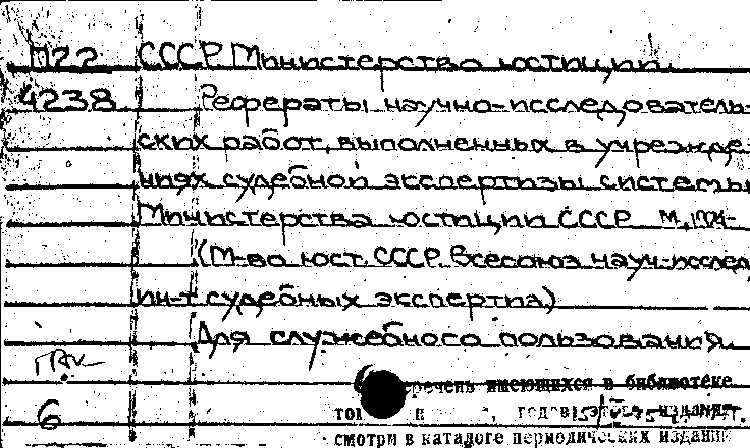 П22 СССР. Министерство юстиции.
4238 Рефераты научно-исследователь-
ских работ, выполненных в учрежде-
ниях судебной экспертизы системы
Министерства юстиции СССР М.,
(М-во юст. СССР. Всесоюз науч-исслед
ин-т судебных экспертиз)
Для служебного пользования.
ГАК
6 перечень имеющихся в библиотеке
издания
смотри в каталоге периодических изданий